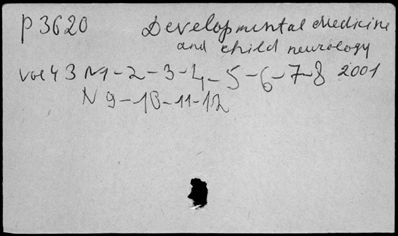 P 3620 Developmental Medicine
and child neurology
Vol 43 N1-2-3-4-5-6-7-8 2001
N 9-10-11-12